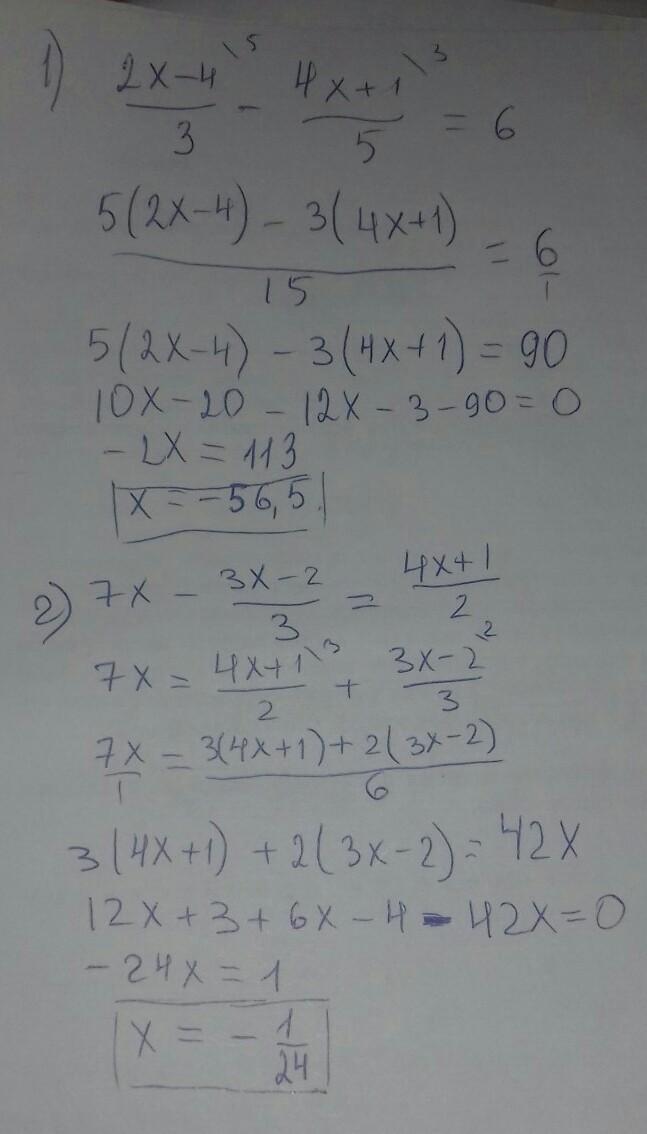 1) \frac{2x-4^{\backslash 5}}{3} - \frac{4x+1^{\backslash 3}}{5} = 6
\frac{5(2x-4) - 3(4x+1)}{15} = \frac{6}{1}
5(2x-4) - 3(4x+1) = 90
10x-20 - 12x - 3 - 90 = 0
-2x = 113
x = -56,5.
2) 7x - \frac{3x-2}{3} = \frac{4x+1}{2}
7x = \frac{4x+1^{\backslash 3}}{2} + \frac{3x-2^{\backslash 2}}{3}
\frac{7x}{1} = \frac{3(4x+1)+2(3x-2)}{6}
3(4x+1) + 2(3x-2) = 42x
12x + 3 + 6x - 4 - 42x = 0
-24x = 1
x = -\frac{1}{24}